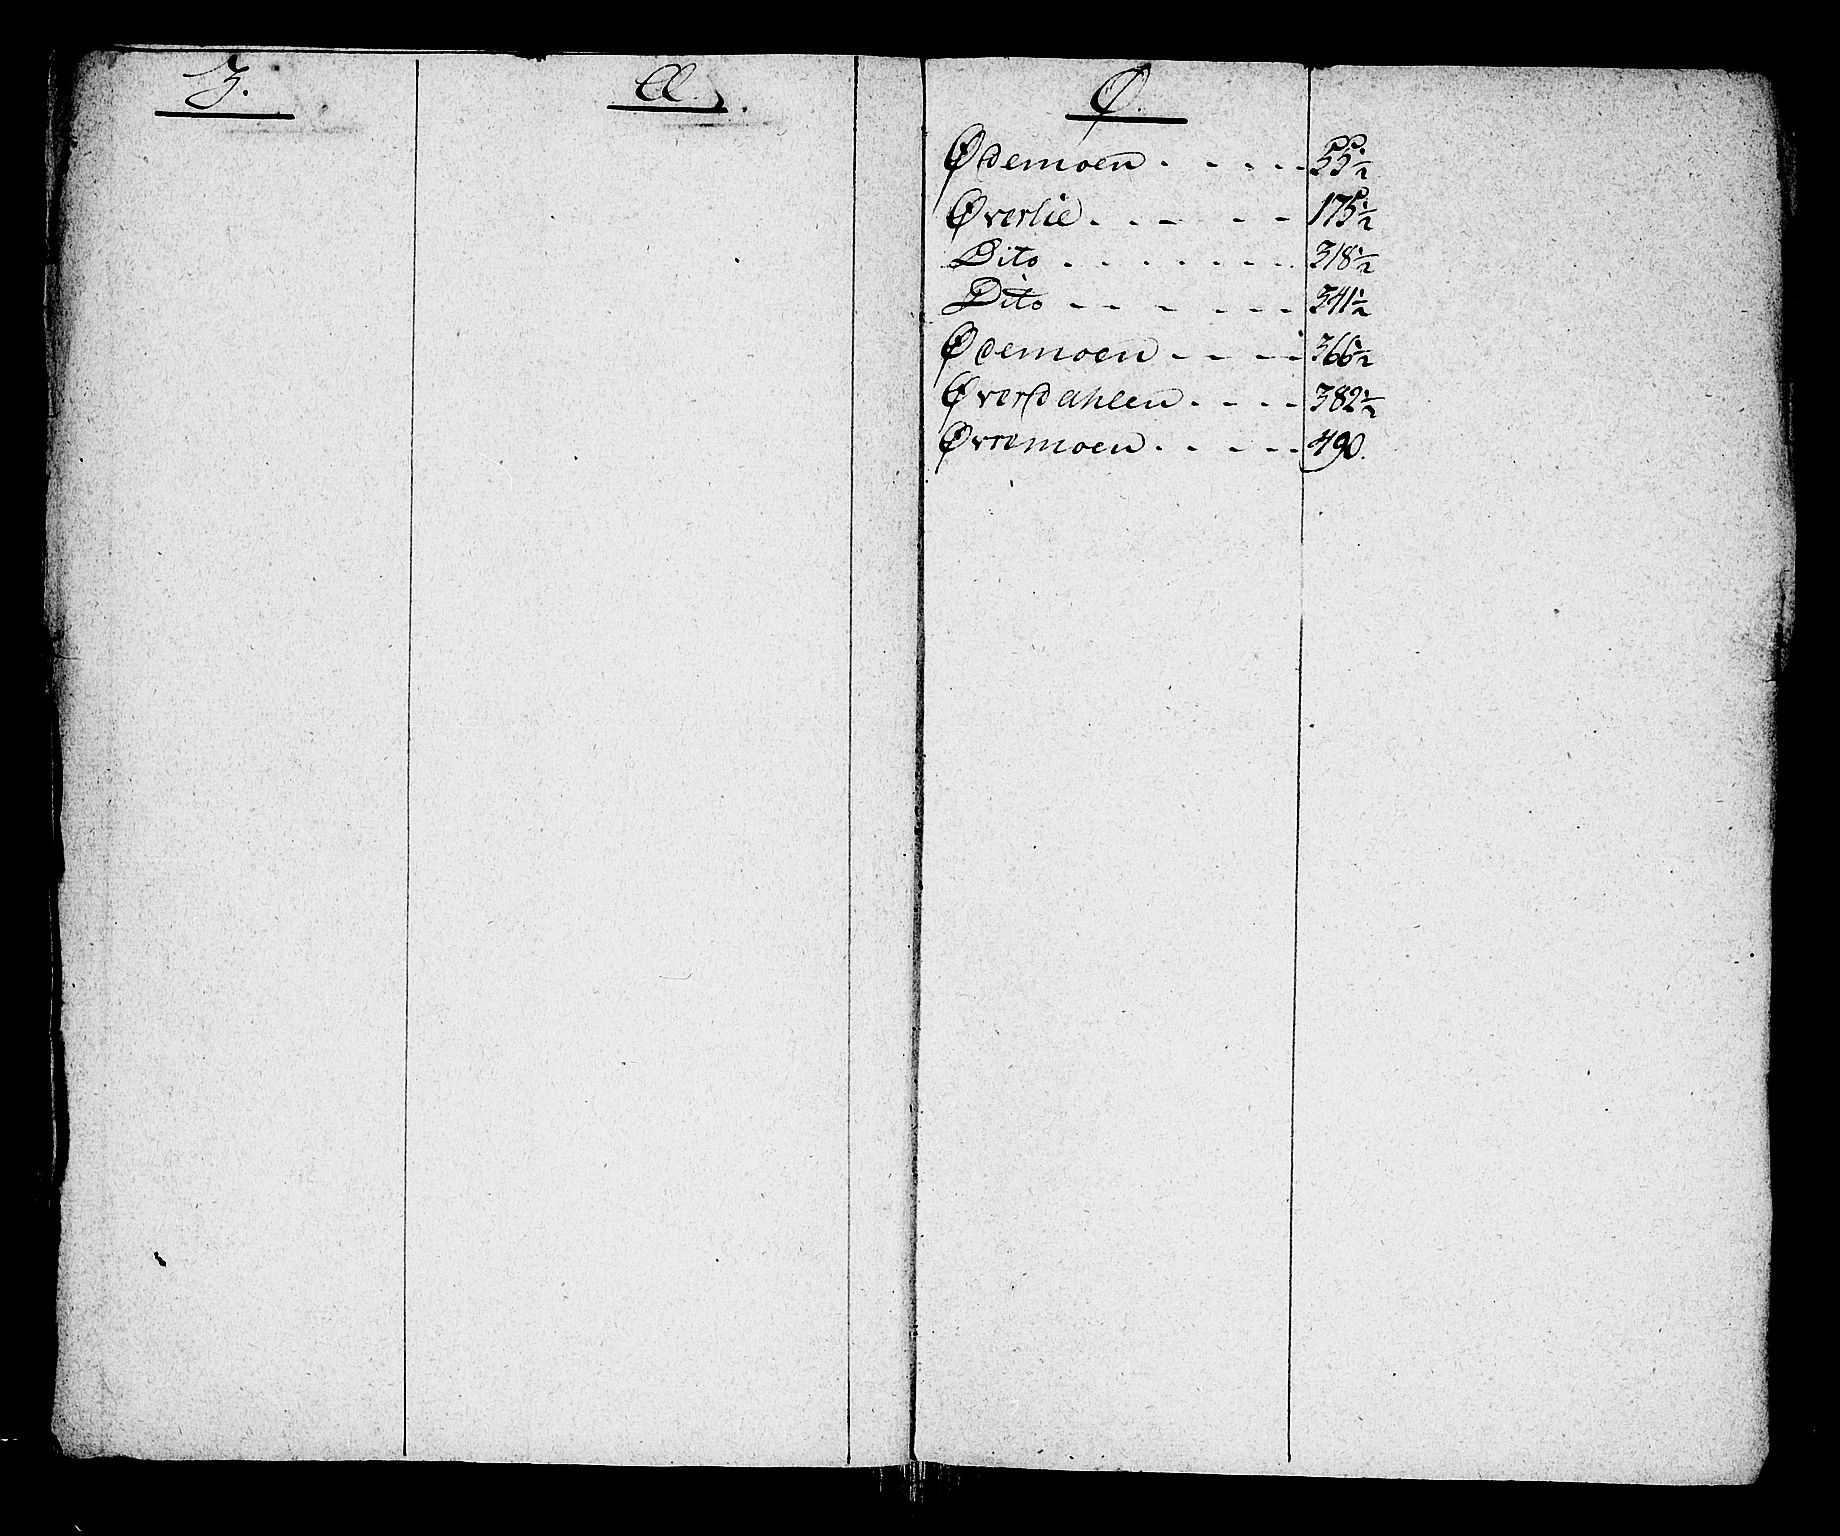 Z.
Æ.
Ø.
Ødemoen . - - - - 55½
Øverlie . - - - - 175½
Dito . . . . . - - . 318½
Dito - - - - - - 341½
Ødemoen - - - - 366½
Øverdahlen . - - - 382½
Øvremoen . - - - - 490.